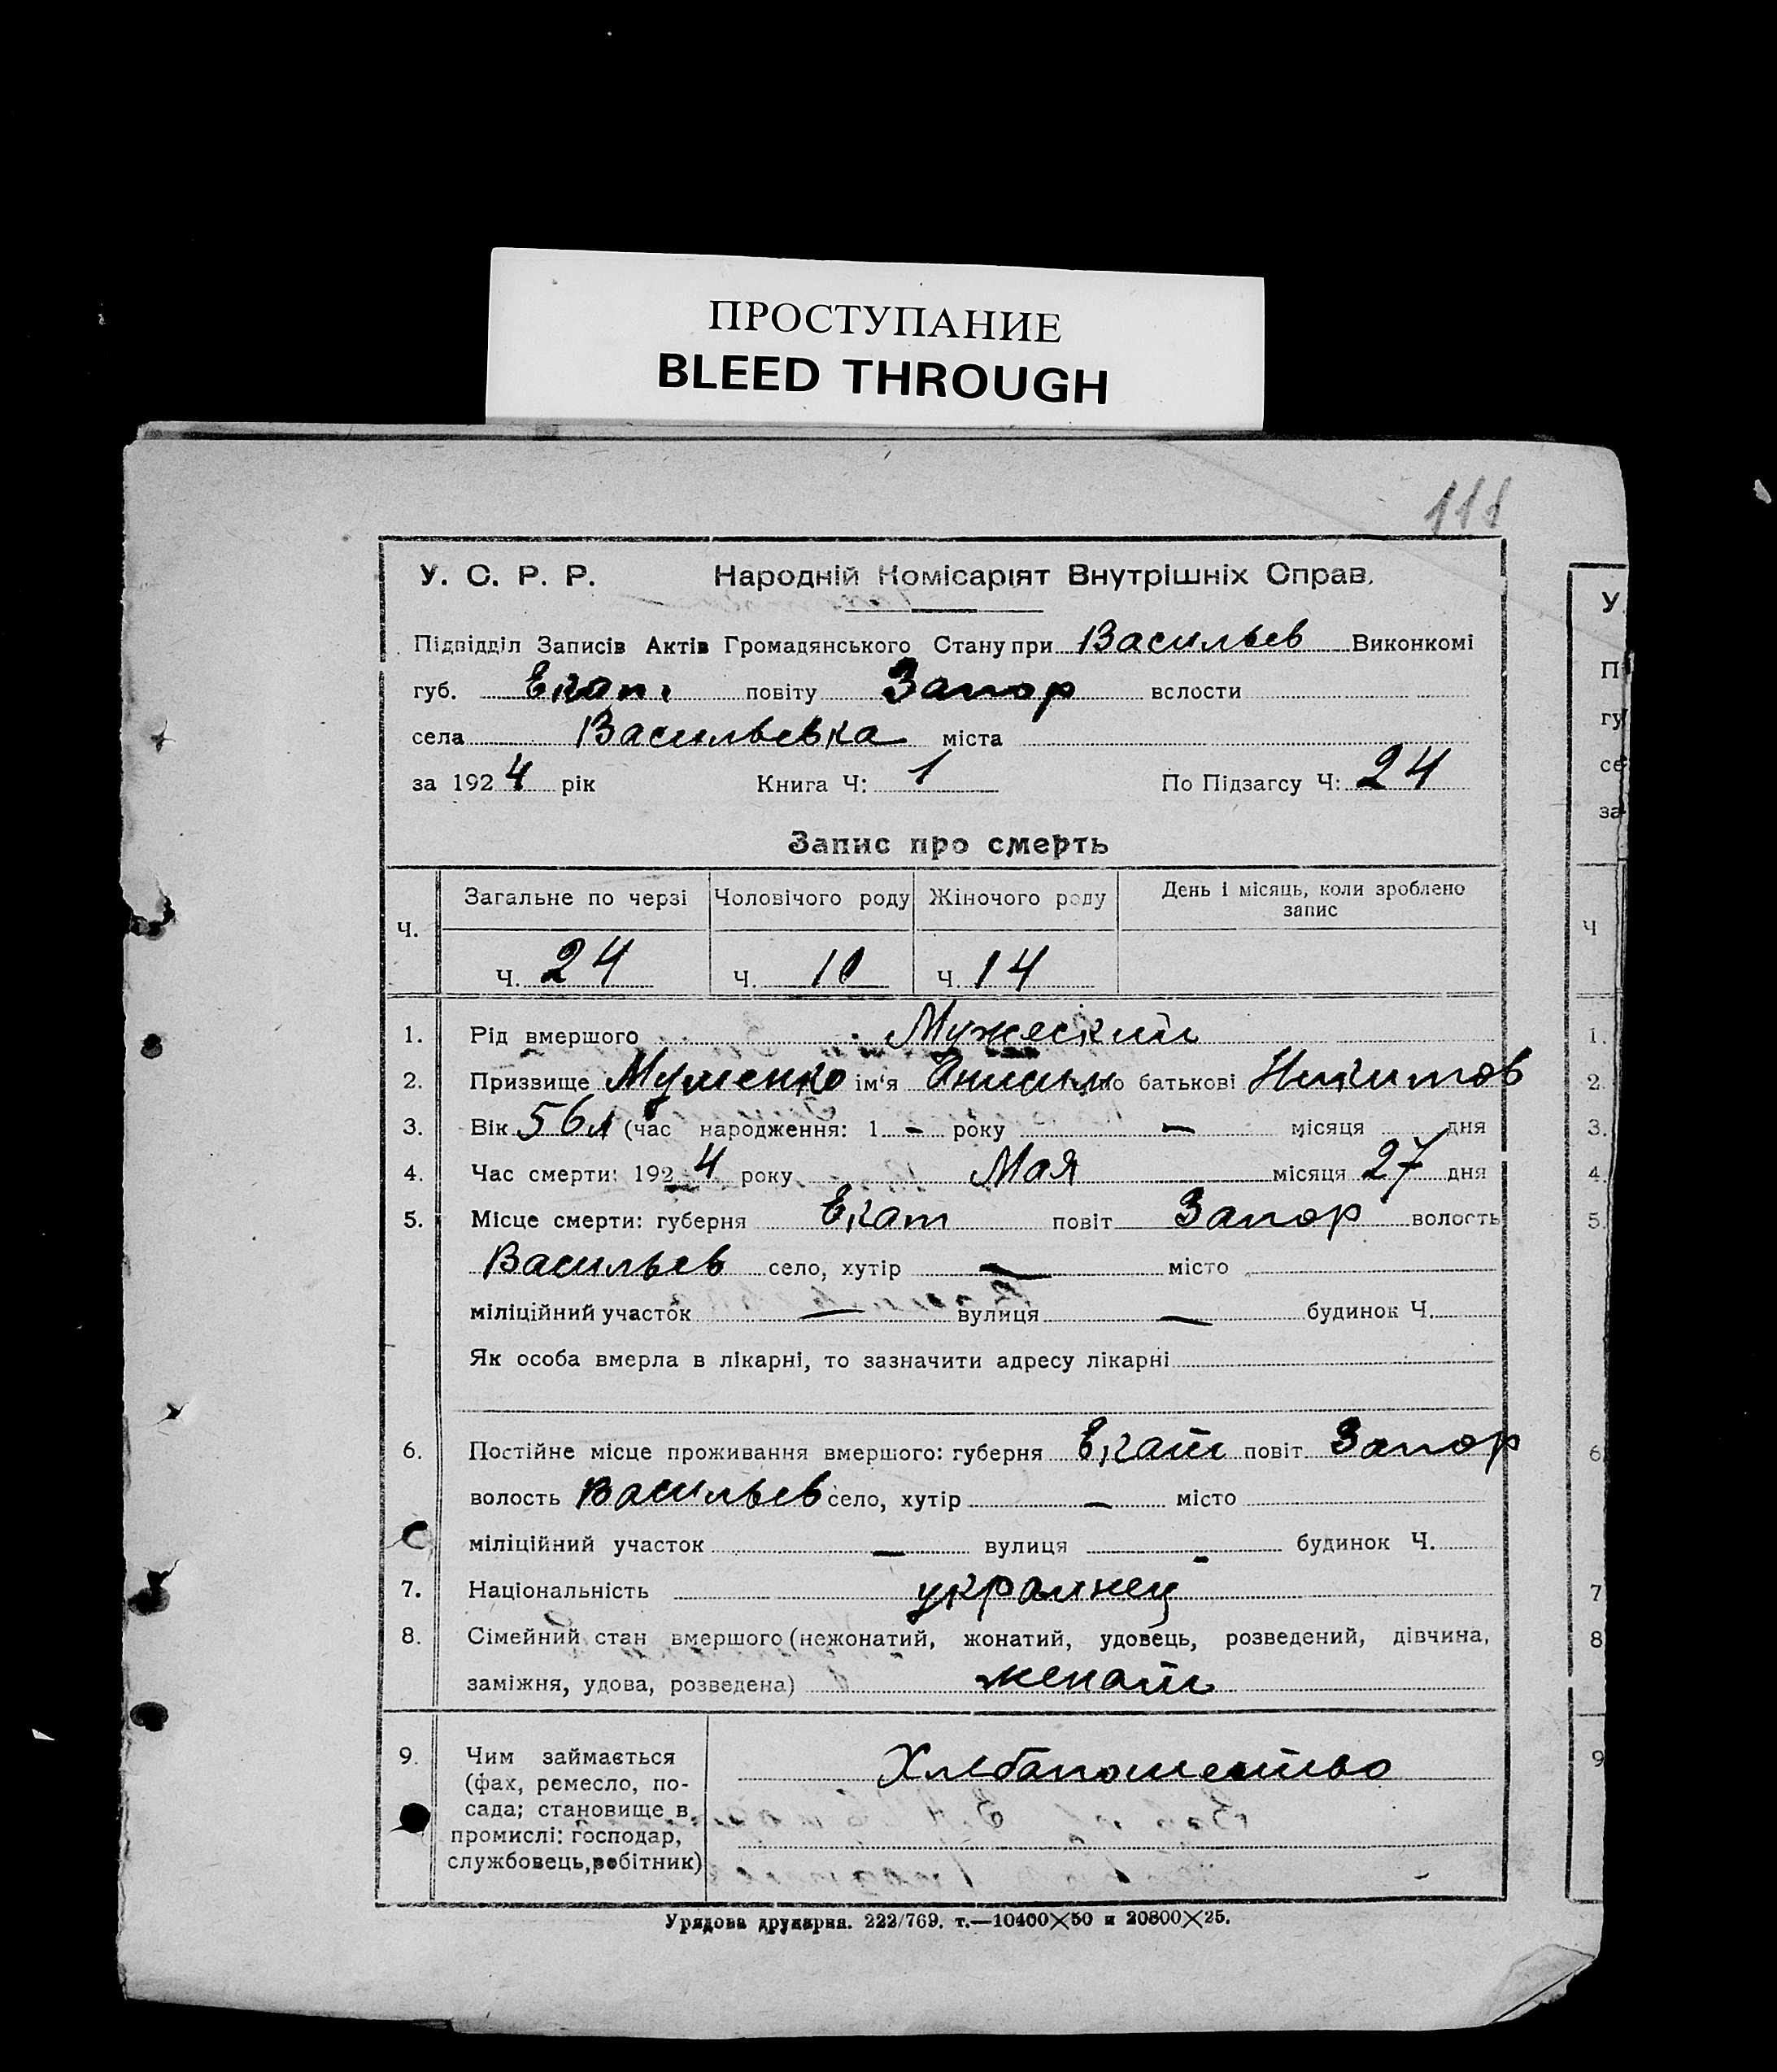 ПРОСТУПАНИЕ
BLEED THROUGH
111
У. С. Р. Р. Народній Комісаріят Внутрішніх Справ.
Підвідділ Записів Актів Громадянського Стану при Васильев Виконкомі
губ. Екат. повіту Запор волости
села Васильевка міста
за 1924 рік Книга Ч: 1 По Підзагсу Ч: 24
Запис про смерть
Ч. Загальне по черзі Чоловічого роду Жіночого роду День і місяць, коли зроблено запис
Ч. 24 Ч. 10 Ч. 14
1. Рід вмершого Мужеский
2. Призвище ім'я Онисим по батькові Никитов
3. Вік 56 л (час народження: 1 - року - місяця дня
4. Час смерти: 1924 року Мая місяця 27 дня
5. Місце смерти: губерня Екат повіт Запор волость
Васильев село, хутір — місто
міліційний участок — вулиця — будинок Ч.
Як особа вмерла в лікарні, то зазначити адресу лікарні
6. Постійне місце проживання вмершого: губерня Екат повіт Запор
волость Васильев село, хутір — місто
міліційний участок — вулиця - будинок Ч.
7. Національність украинец
8. Сімейний стан вмершого (нежонатий, жонатий, удовець, розведений, дівчина,
заміжня, удова, розведена) женат
9. Чим займається Хлебапошество
(фах, ремесло, по-
сада; становище в
промислі: господар,
службовець, робітник)
Урядова друкарня. 222/769. т.—10400×50 и 20800×25.
У
П
гу
се
за
Ч
1.
2
3.
4.
5.
6
7
8
9